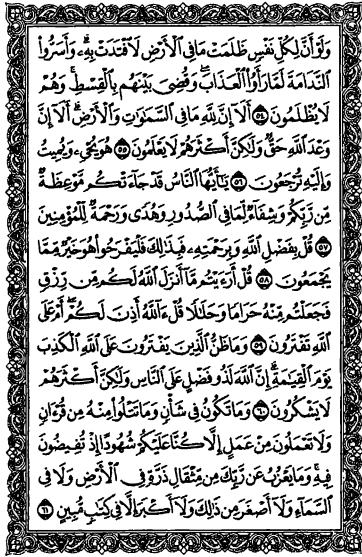 وَلَوْ أَنَّ لِكُلِّ نَفْسٍ ظَلَمَتْ مَا فِي ٱلْأَرْضِ لَٱفْتَدَتْ بِهِۦ وَأَسَرُّوا۟
ٱلنَّدَامَةَ لَمَّا رَأَوُا۟ ٱلْعَذَابَ وَقُضِىَ بَيْنَهُم بِٱلْقِسْطِ وَهُمْ
لَا يُظْلَمُونَ ٥٤ أَلَآ إِنَّ لِلَّهِ مَا فِي ٱلسَّمَٰوَٰتِ وَٱلْأَرْضِ أَلَآ إِنَّ
وَعْدَ ٱللَّهِ حَقٌّ وَلَٰكِنَّ أَكْثَرَهُمْ لَا يَعْلَمُونَ ٥٥ هُوَ يُحْىِۦ وَيُمِيتُ
وَإِلَيْهِ تُرْجَعُونَ ٥٦ يَٰٓأَيُّهَا ٱلنَّاسُ قَدْ جَآءَتْكُم مَّوْعِظَةٌ
مِّن رَّبِّكُمْ وَشِفَآءٌ لِّمَا فِي ٱلصُّدُورِ وَهُدًى وَرَحْمَةٌ لِّلْمُؤْمِنِينَ
٥٧ قُلْ بِفَضْلِ ٱللَّهِ وَبِرَحْمَتِهِۦ فَبِذَٰلِكَ فَلْيَفْرَحُوا۟ هُوَ خَيْرٌ مِّمَّا
يَجْمَعُونَ ٥٨ قُلْ أَرَءَيْتُم مَّآ أَنزَلَ ٱللَّهُ لَكُم مِّن رِّزْقٍ
فَجَعَلْتُم مِّنْهُ حَرَامًا وَحَلَٰلًا قُلْ ءَآللَّهُ أَذِنَ لَكُمْ أَمْ عَلَى
ٱللَّهِ تَفْتَرُونَ ٥٩ وَمَا ظَنُّ ٱلَّذِينَ يَفْتَرُونَ عَلَى ٱللَّهِ ٱلْكَذِبَ
يَوْمَ ٱلْقِيَٰمَةِ إِنَّ ٱللَّهَ لَذُو فَضْلٍ عَلَى ٱلنَّاسِ وَلَٰكِنَّ أَكْثَرَهُمْ
لَا يَشْكُرُونَ ٦٠ وَمَا تَكُونُ فِي شَأْنٍ وَمَا تَتْلُوا۟ مِنْهُ مِن قُرْءَانٍ
وَلَا تَعْمَلُونَ مِنْ عَمَلٍ إِلَّا كُنَّا عَلَيْكُمْ شُهُودًا إِذْ تُفِيضُونَ
فِيهِ وَمَا يَعْزُبُ عَن رَّبِّكَ مِن مِّثْقَالِ ذَرَّةٍ فِي ٱلْأَرْضِ وَلَا فِي
ٱلسَّمَآءِ وَلَآ أَصْغَرَ مِن ذَٰلِكَ وَلَآ أَكْبَرَ إِلَّا فِي كِتَٰبٍ مُّبِينٍ ٦١